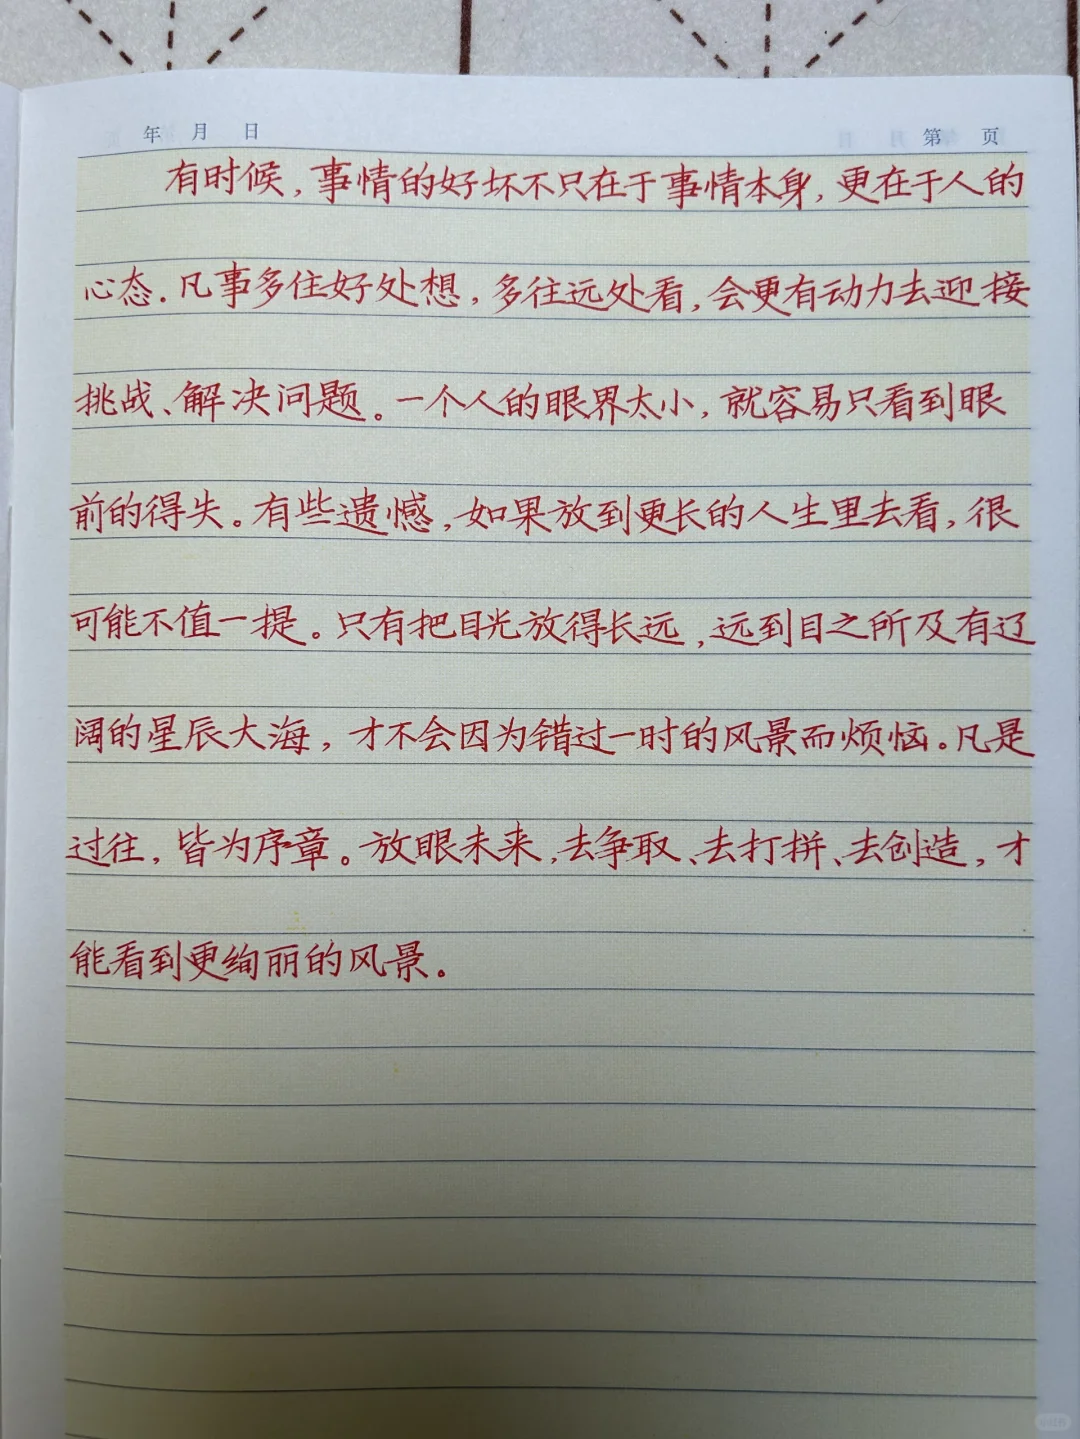 年 月 日 第 页
有时候，事情的好坏不只在于事情本身，更在于人的
心态.凡事多往好处想，多往远处看，会更有动力去迎接
挑战、解决问题。一个人的眼界太小，就容易只看到眼
前的得失。有些遗憾，如果放到更长的人生里去看，很
可能不值一提。只有把目光放得长远，远到目之所及有辽
阔的星辰大海，才不会因为错过一时的风景而烦恼。凡是
过往，皆为序章。放眼未来，去争取、去打拼、去创造，才
能看到更绚丽的风景。
小红书